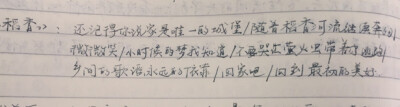 稻香：还记得你说家是唯一的城堡/随着稻香河流继续奔跑
微微笑/小时候的梦我知道/不要哭让萤火虫带着你逃跑
乡间的歌谣永远的依靠/回家吧/回到最初的美好